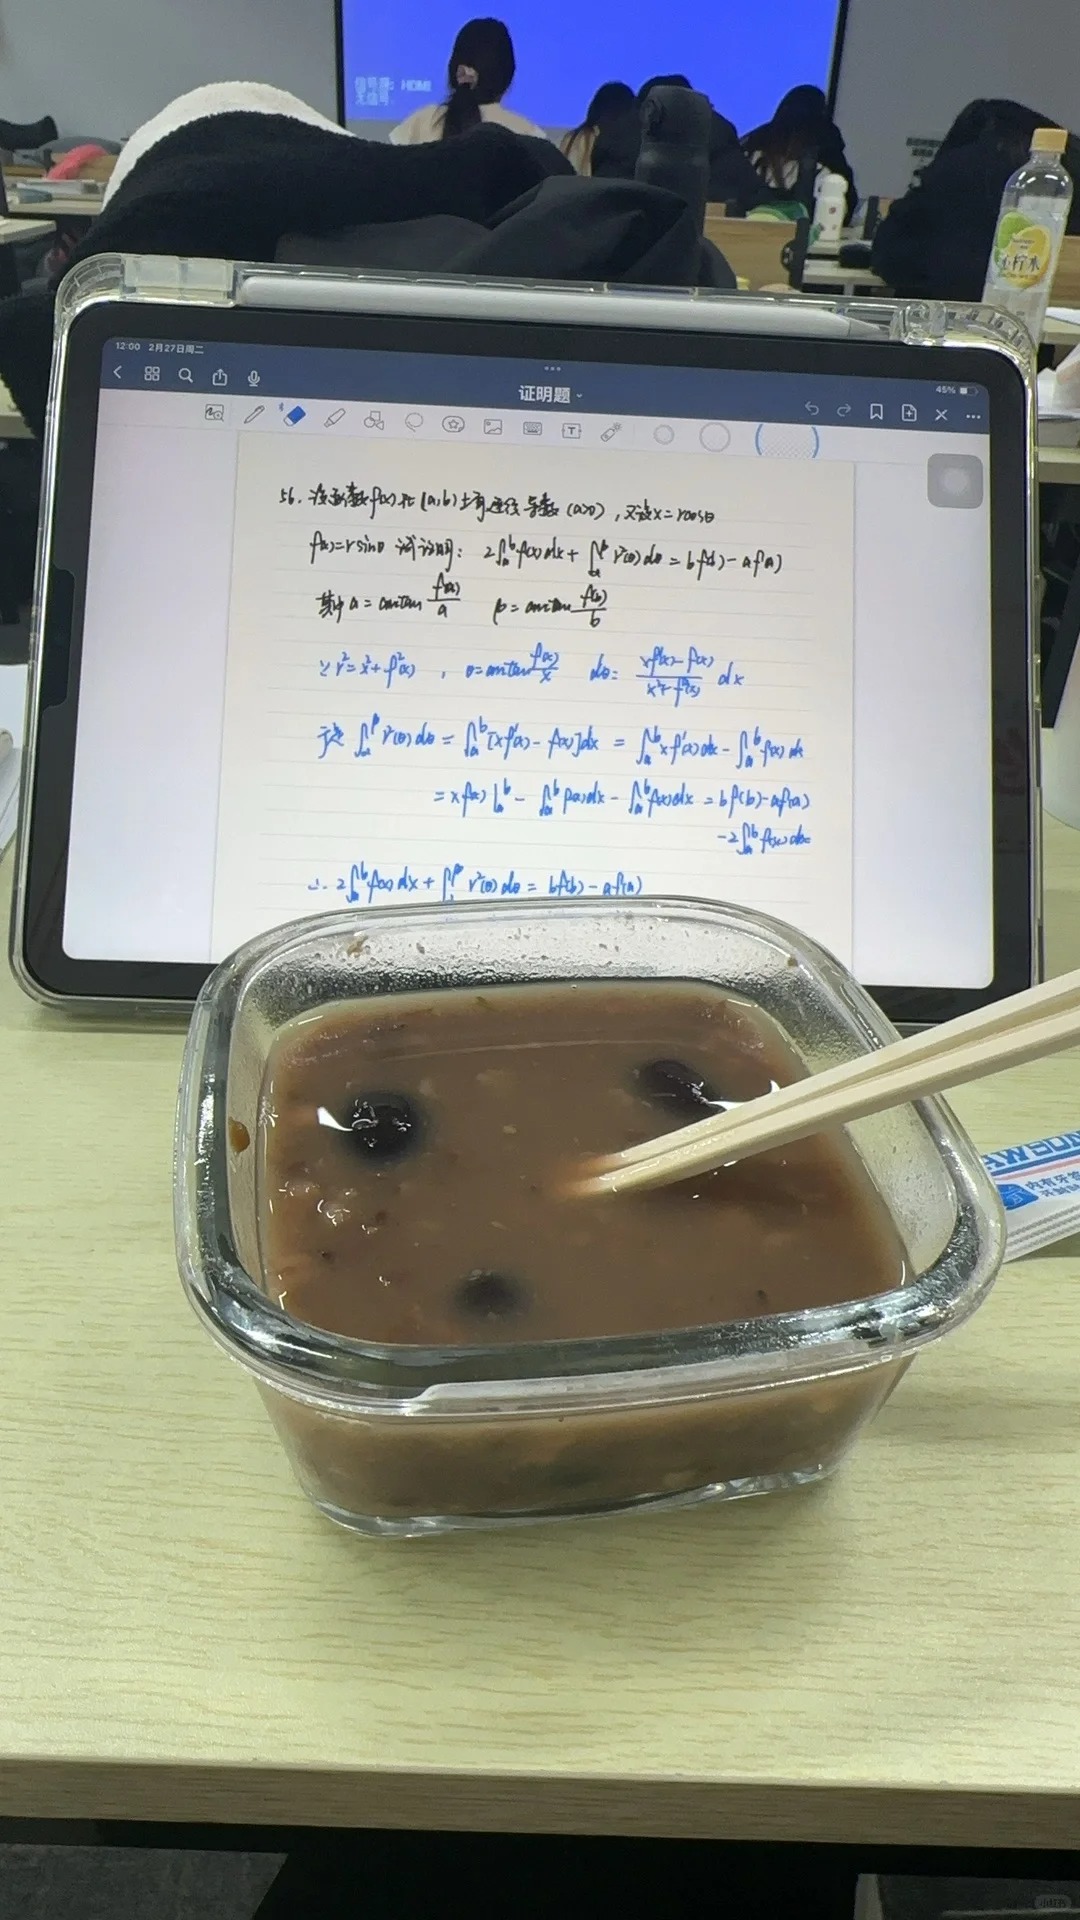 信号源: HDMI
无信号
柠水
12:00 2月27日周二
45%
证明题
56. 设函数f(x)在[a,b]上有连续导数(a>0), 又设x=rcosθ
f(x)=rsinθ 试证明: 2∫ₐᵇf(x)dx+∫_α^β r²(θ)dθ=bf(b)-af(a)
其中α=arctan f(a)/a β=arctan f(b)/b
∵r²=x²+f²(x), θ=arctan f(x)/x dθ= xf'(x)-f(x)/x²+f²(x) dx
于是 ∫_α^β r²(θ)dθ=∫ₐᵇ[xf'(x)-f(x)]dx=∫ₐᵇxf'(x)dx-∫ₐᵇf(x)dx
=xf(x)|ₐᵇ-∫ₐᵇf(x)dx-∫ₐᵇf(x)dx=bf(b)-af(a)
-2∫ₐᵇf(x)dx
∴2∫ₐᵇf(x)dx+∫_α^β r²(θ)dθ=bf(b)-af(a)
AWSON
内有牙签
小红书